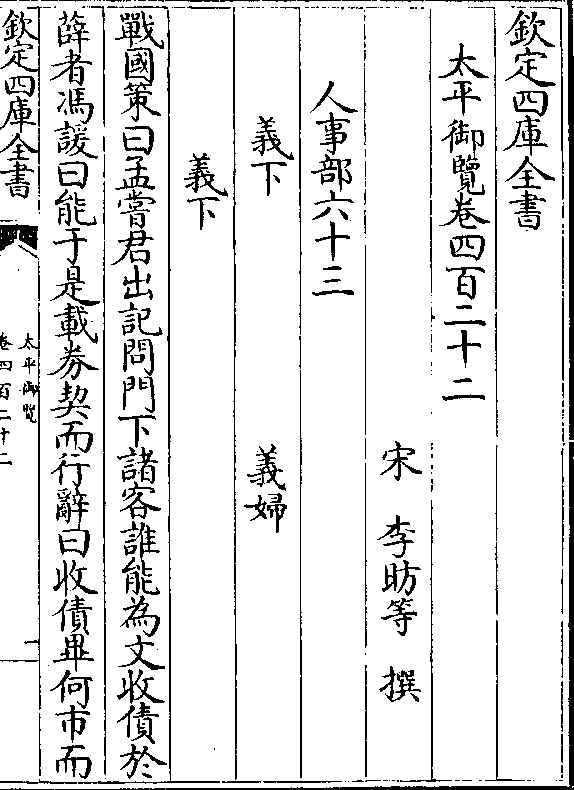 欽定四庫全書
太平御覽卷四百二十二
宋 李昉等 撰
人事部六十三
義下 義婦
義下
戰國策曰孟嘗君出記問門下諸客誰能為文收債於
薛者馮諼曰能于是載劵契而行辭曰收債畢何市而
欽定四庫全書
太平御覽
卷四百二十二
一